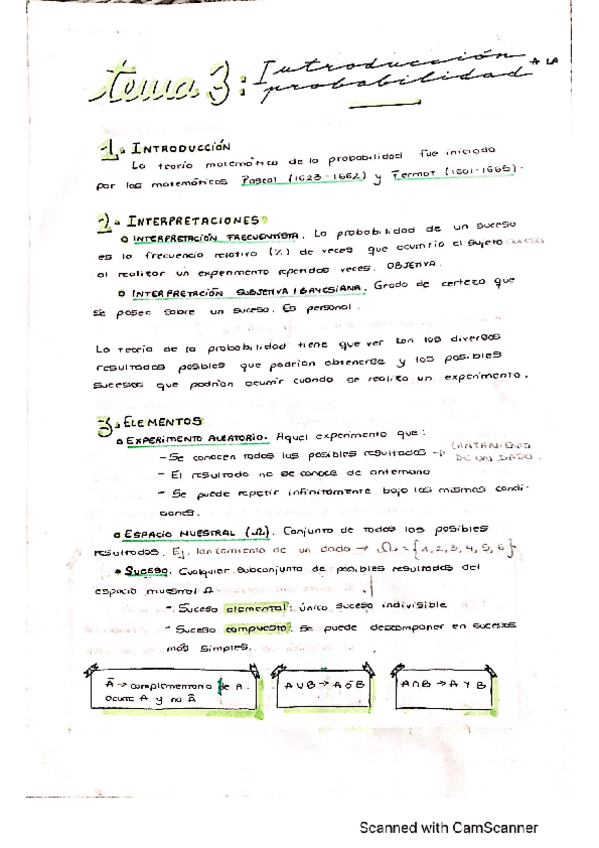 tema 3: Introducción A LA
probabilidad
1. INTRODUCCIÓN
La teoría matemática de la probabilidad fue iniciada
por los matemáticos Pascal (1623-1662) y Fermat (1601-1665).
2. INTERPRETACIONES
INTERPRETACIÓN FRECUENTISTA. La probabilidad de un suceso
es la frecuencia relativa (%) de veces que ocurriría el sujeto suceso
al realizar un experimento repetidas veces. OBJETIVA.
INTERPRETACIÓN SUBJETIVA / BAYESIANA. Grado de certeza que
se posee sobre un suceso. Es personal.
La teoría de la probabilidad tiene que ver con los diversos
resultados posibles que podrían obtenerse y los posibles
sucesos que podrían ocurrir cuando se realiza un experimento.
3. ELEMENTOS
EXPERIMENTO ALEATORIO. Aquel experimento que:
- Se conocen todos los posibles resultados → LANZAMIENTO
DE UN DADO.
- El resultado no se conoce de antemano
- Se puede repetir infinitamente bajo las mismas condi-
ciones.
ESPACIO MUESTRAL (Ω). Conjunto de todos los posibles
resultados. Ej. lanzamiento de un dado → Ω = {1,2,3,4,5,6}
SUCESO. Cualquier subconjunto de posibles resultados del
espacio muestral Ω
- Suceso elemental: único suceso indivisible
- Suceso compuesto: se puede descomponer en sucesos
más simples.
Ā → complementario de A.
Ocurre A y no Ā
A∪B → A ó B
A∩B → A Y B
Scanned with CamScanner